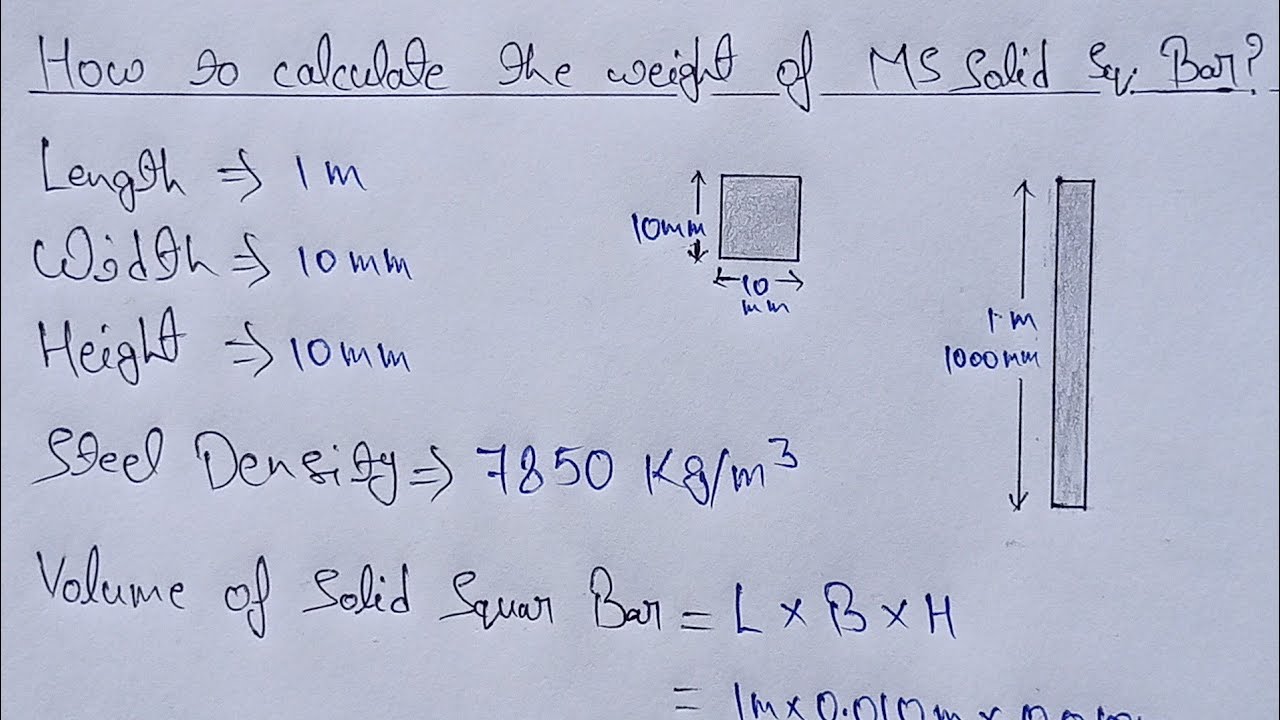 How to calculate the weight of MS Solid Sq. Bar?
Length ⇒ 1 m
Width ⇒ 10 mm
Height ⇒ 10 mm
10mm
10
mm
1 m
1000mm
Steel Density ⇒ 7850 Kg/m³
Volume of Solid Squar Bar = L × B × H
= 1m × 0.010m ×